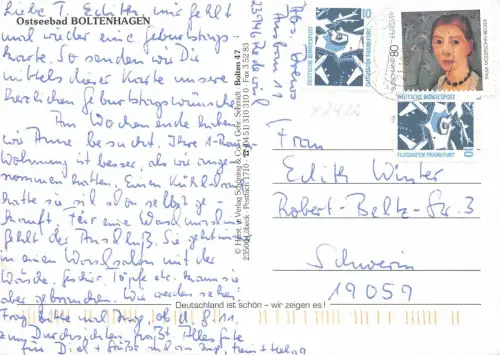 Ostseebad BOLTENHAGEN
Liebe T. Edith, mir fehlt
mal wieder eine Geburtstags-
karte. So senden wir Dir
mittels dieser Karte unsere
herzlichen Geburtstagswünsche
Am Wochenende haben
wir Anne besucht. Ihre 1-Raum-
Wohnung ist besser, als wir ange-
nommen hatten. Einen Kühlschr.
hatte sie sich schon selbst ge-
kauft. Für eine Waschmasch.
fehlt der Anschluß. Sie geht
in einen Waschsalon mit der
Wäsche. Töpfe etc. kann sie
aber gebrauchen. Wir werden sehen.
Alles Gute
für Dich + Grüße
© Horst = Verlag Schöning & Co. + Gebr. Schmidt
23506 Lübeck · Postfach 1710 · (04 51) 310 319 0 · Fax 3 52 83
Bolten 47
DEUTSCHE BUNDESPOST
FLUGHAFEN FRANKFURT
10
80
DEUTSCHE BUNDESPOST
PAULA MODERSOHN-BECKER
DEUTSCHE BUNDESPOST
FLUGHAFEN FRANKFURT
10
Frau
Edith Winter
Robert-Beltz-Str. 3
Schwerin
19059
Deutschland ist schön – wir zeigen es!